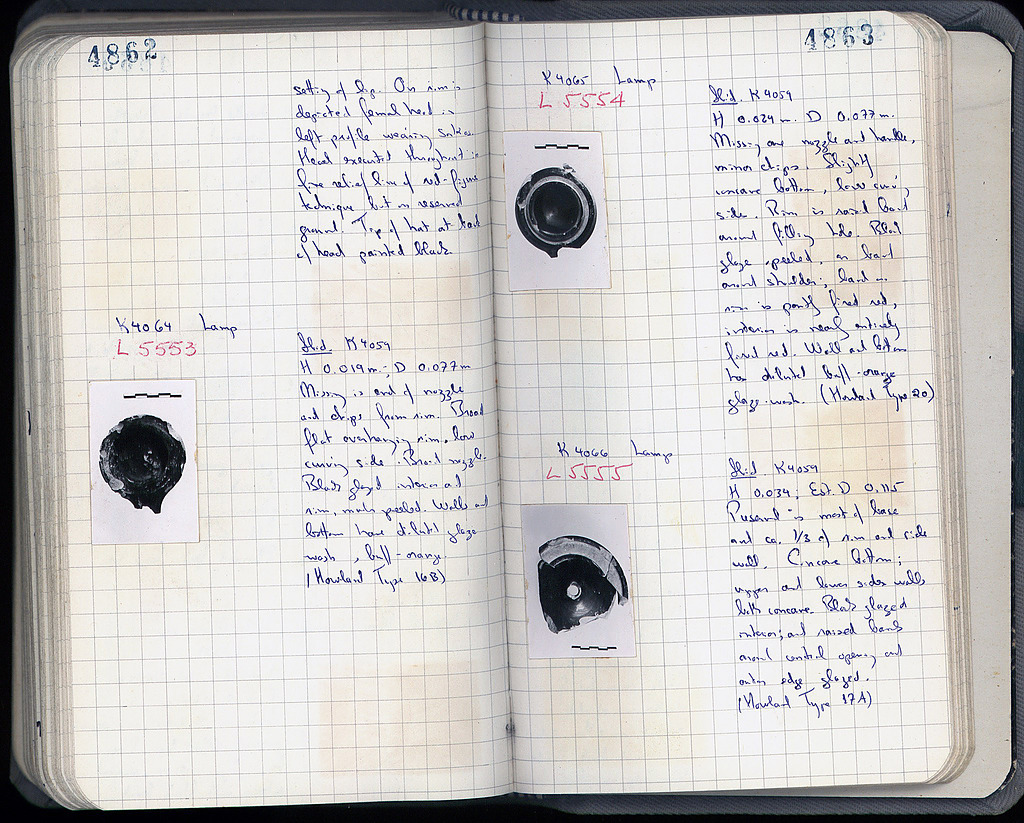 4862
setting of lip. On rim is
depicted female head in
left profile wearing sakkos.
Head executed throughout in
fine relief line of red-figure
technique but on reserved
ground. Tip of hat at back
of head painted black
K4064 Lamp
L 5553
Ibid. K4059
H 0.019 m.; D 0.077 m
Missing is end of nozzle
and chips from rim. Broad
flat overhanging rim, low
curving side. Broad nozzle
Black glazed interior and
rim, much peeled. Walls and
bottom have dilute glaze
wash, buff-orange
(Howland Type 16B)
4863
K4065 Lamp
L 5554
Ibid. K4059
H 0.024 m. D 0.077 m.
Missing are nozzle and handle,
minor chips. Slightly
concave bottom, low curving
side. Rim is raised band
around filling hole. Black
glaze, peeled, on band
around shoulder; band on
rim is partly fired red,
interior is nearly entirely
fired red. Wall and bottom
has diluted buff-orange
glaze-wash. (Howland Type 20)
K4066 Lamp
L 5555
Ibid K4059
H 0.034; Est. D 0.115
Preserved is most of base
and ca. 1/3 of rim and side
wall. Concave bottom;
upper and lower side walls
both concave. Black glazed
interior; and raised band
around central opening and
outer edge glazed.
(Howland Type 17A)